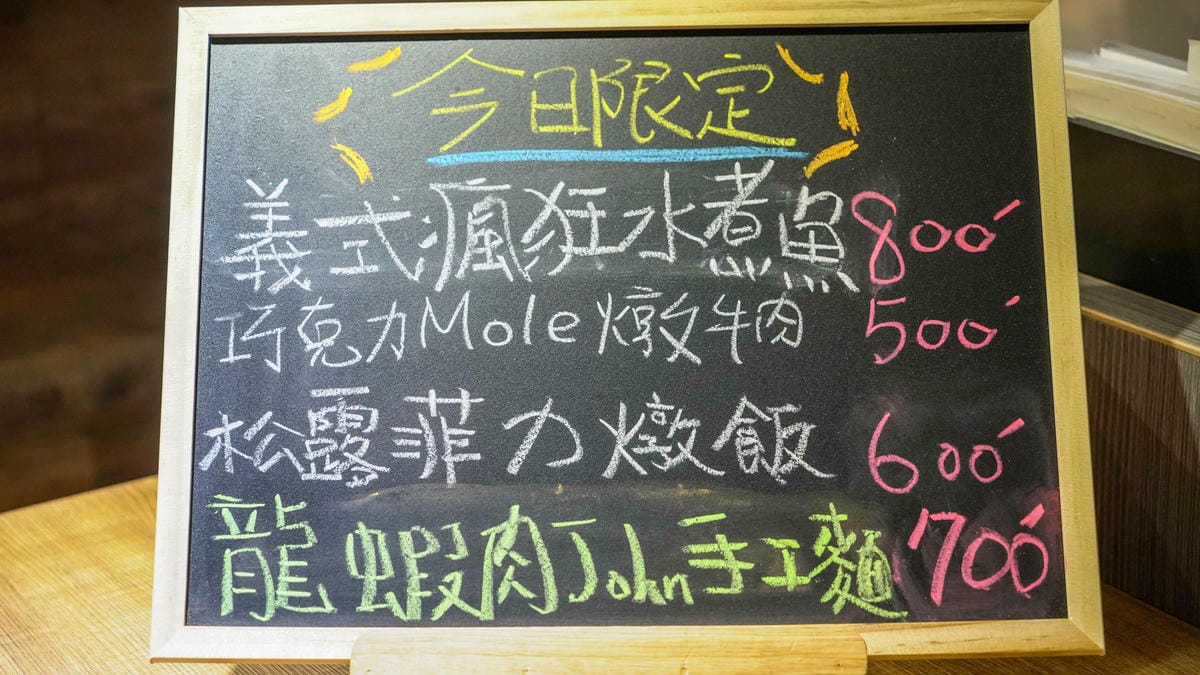 今日限定
義式瘋狂水煮魚 800
巧克力Mole燉牛肉 500
松露菲力燉飯 600
龍蝦肉John手工麵 700